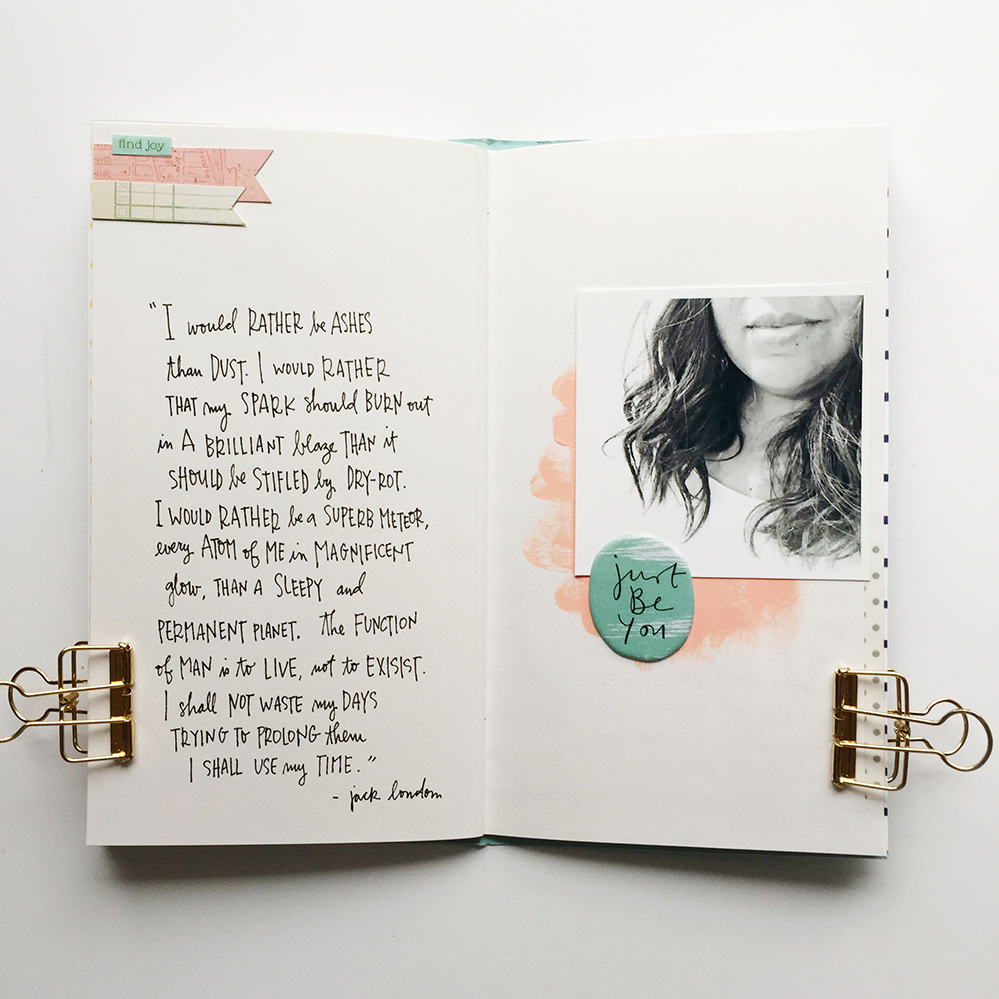 find joy
"I would RATHER be ASHES
than DUST. I WOULD RATHER
THAT my SPARK should BURN out
in A BRILLIANT blaze THAN it
SHOULD be STIFLED by DRY-ROT.
I WOULD RATHER be a SUPERB METEOR,
every ATOM of ME in MAGNIFICENT
glow, THAN A SLEEPY and
PERMANENT PLANET. the FUNCTION
of MAN is to LIVE, not to EXISIST.
I shall NOT WASTE my DAYS
TRYING TO PROLONG them
I SHALL USE my TIME."
- jack london
just
Be
You